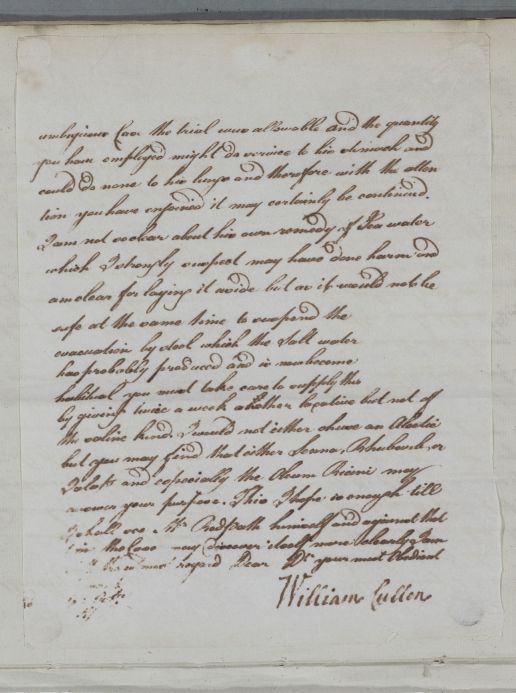 ambiguous Case the trial was allowable and the quantity
you have employed might do service to his stomach and
could do none to his lungs and therefore with the atten
tion you have enjoined it may certainly be continued.
I am not so clear about his own remedy of Sea water
which I strongly suspect may have done harm and
am clear for laying it aside but as it would not be
safe at the same time to suspend the
evacuation by stool which the Salt water
has probably produced and is now become
habitual you must take care to supply this
by giving twice a week another laxative but not of
the saline kind. I would not either chuse an Aloetic
but you may find that either Senna, Rhubarb, or
Jalap and especially the Oleum Ricini may
answer your purpose. This I hope is enough till
I shall see Mr. Redpath himself and against that
time the Case may discover itself more clearly I am
regard Dear Dr. your most Obedient
William Cullen